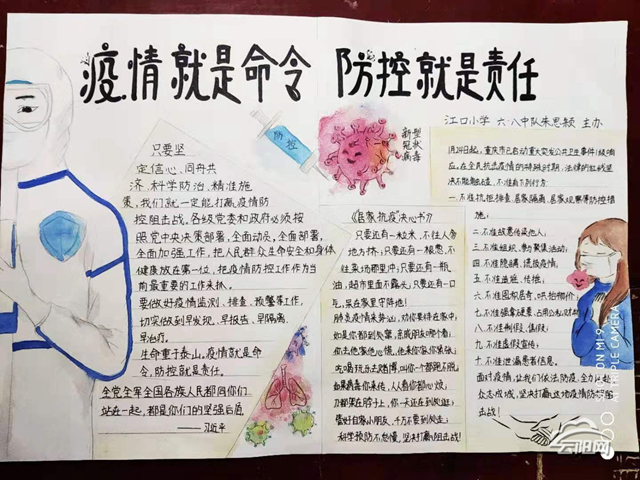 疫情就是命令 防控就是责任
江口小学 六.八中队朱思颖 主办
防控
新型
冠状
病毒
只要坚
定信心、同舟共
济、科学防治、精准施
策,我们就一定能打赢疫情防
控阻击战。各级党委和政府必须按
照党中央决策部署,全面动员,全面部署,
全面加强工作,把人民群众生命安全和身体
健康放在第一位,把疫情防控工作作为当
前最重要的工作来抓。
要做好疫情监测、排查、预警等工作,
切实做到早发现、早报告、早隔离、
早治疗。
生命重于泰山,疫情就是命
令,防控就是责任。
全党全军全国各族人民都同你们
站在一起,都是你们的坚强后盾
——习近平
《居家抗疫》决心书》
只要还有一粒米,不往人旁
地方挤;只要还有一根葱,不
往菜场那里冲;只要还有一瓶
油,超市里面不露头;只要还有一口
气,呆在家里守阵地!
肺炎疫情来势凶,对你要往在家中;
如果病毒你来传,人人看你都心烦;
科学预防不怠慢,坚决打赢阻击战!
1月24日起,重庆市已启动重大突发公共卫生事件1级响
应,在全民抗击疫情的特殊时期,法律的红线坚
决不能触碰,不准有下列行为:
一.不准抗拒排查、居家隔离、居家观察等防控措
施;
二.不准故意传染他人;
三.不准组织、参与聚集活动;
四.不准隐瞒、谎报疫情;
五.不准造谣、传谣;
六.不准囤积居奇,哄抬物价;
八.不准制假、售假;
九.不准虚假宣传;
十.不准泄漏患者信息。
面对疫情,让我们依法防疫,全力以赴
众志成城,坚决打赢这场疫情防控阻
击战!
云阳网